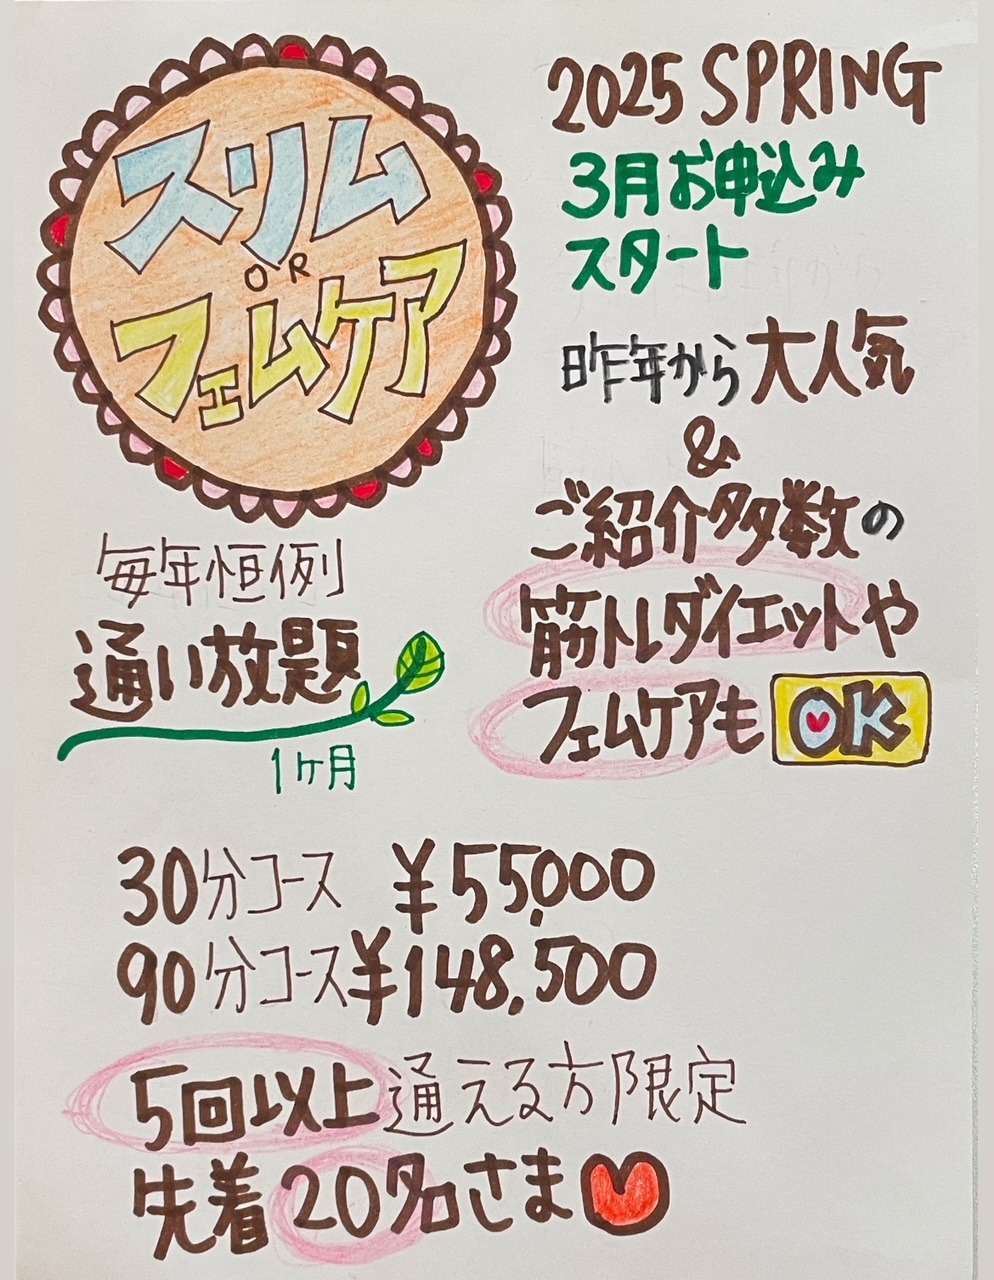 スリム
OR
フェムケア
2025 SPRING
3月お申込み
スタート
昨年から大人気
&
ご紹介多数の
筋トレダイエットや
フェムケアもOK
毎年恒例
通い放題
1ヶ月
30分コース ¥55,000
90分コース¥148,500
5回以上通える方限定
先着20名さま